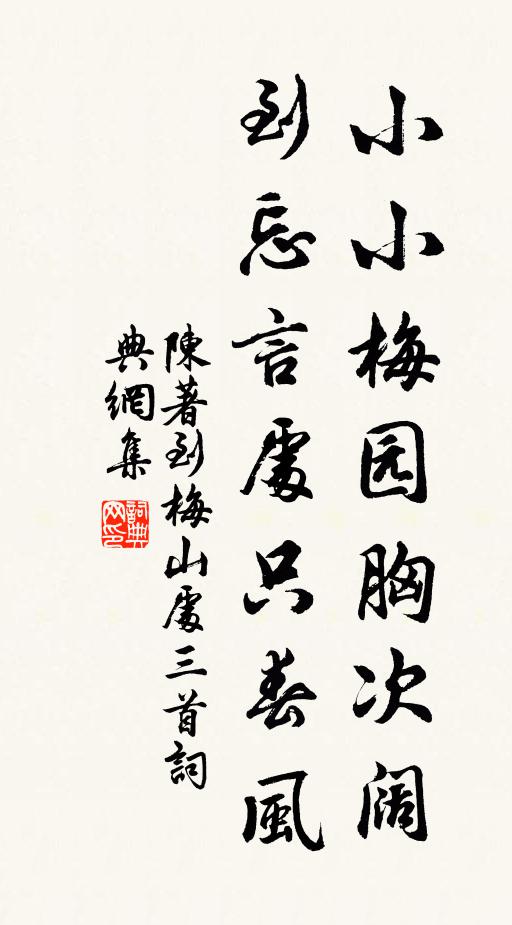 小小梅园胸次阔
到忘言處只春風
陳著到梅山處三首詞
典網集
詞典网印